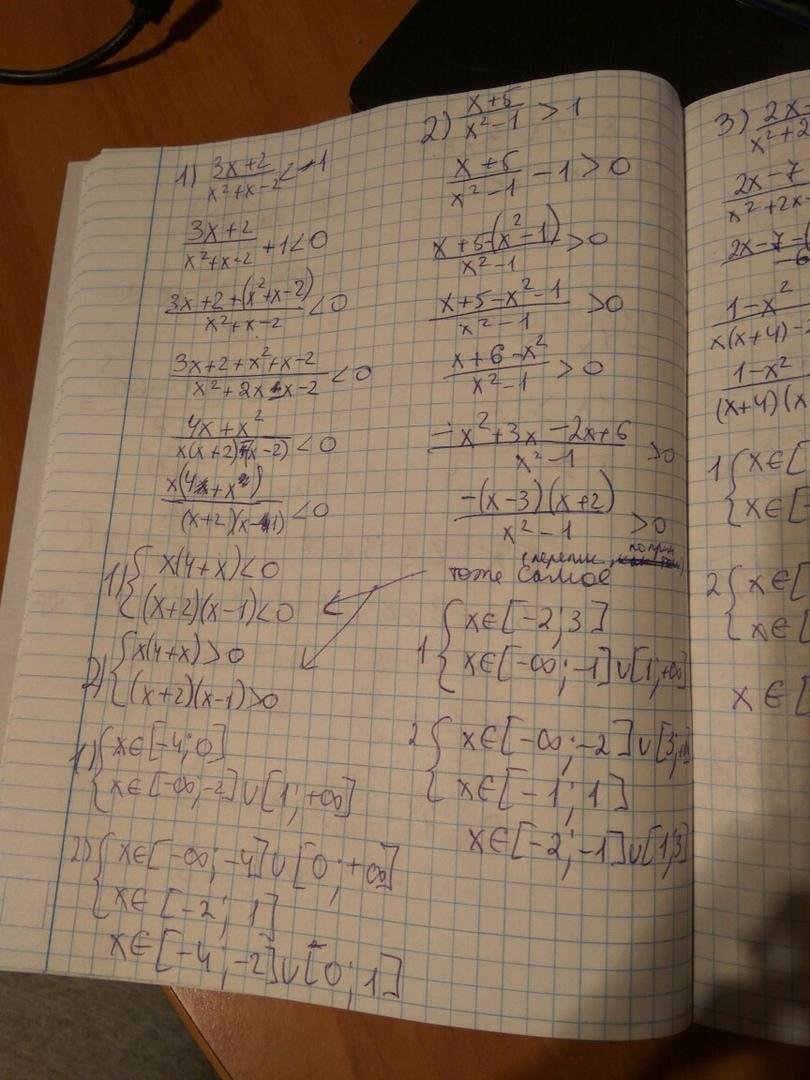 1) (3x+2)/(x²+x-2) < -1
(3x+2)/(x²+x-2) +1<0
(3x+2+(x²+x-2))/(x²+x-2) <0
(3x+2+x²+x-2)/(x²+2x-x-2) <0
(4x+x²)/(x(x+2)-(x-2)) <0
x(4+x)/((x+2)(x-1)) <0
1) { x(4+x)<0
(x+2)(x-1)<0
2) { x(4+x)>0
(x+2)(x-1)>0
1) { x∈[-4;0]
x∈[-∞;-2]∪[1;+∞]
2) { x∈[-∞;-4]∪[0;+∞]
x∈[-2;1]
x∈[-4;-2]∪[0;1]
2) (x+5)/(x²-1) >1
(x+5)/(x²-1) -1>0
(x+5-(x²-1))/(x²-1) >0
(x+5-x²-1)/(x²-1) >0
(x+6-x²)/(x²-1) >0
(-x²+3x-2x+6)/(x²-1) >0
(-(x-3)(x+2))/(x²-1) >0
тоже самое
1 { x∈[-2;3]
x∈[-∞;-1]∪[1;+∞]
2 { x∈[-∞;-2]∪[3;+∞]
x∈[-1;1]
x∈[-2;-1]∪[1;3]
3) 2x-
x²+2
2x-7
x²+2x-
2x-7-(
-6
1-x²
x(x+4)-
1-x²
(x+4)(x
1 { x∈[
x∈[-
2 { x∈[
x∈[
x∈[